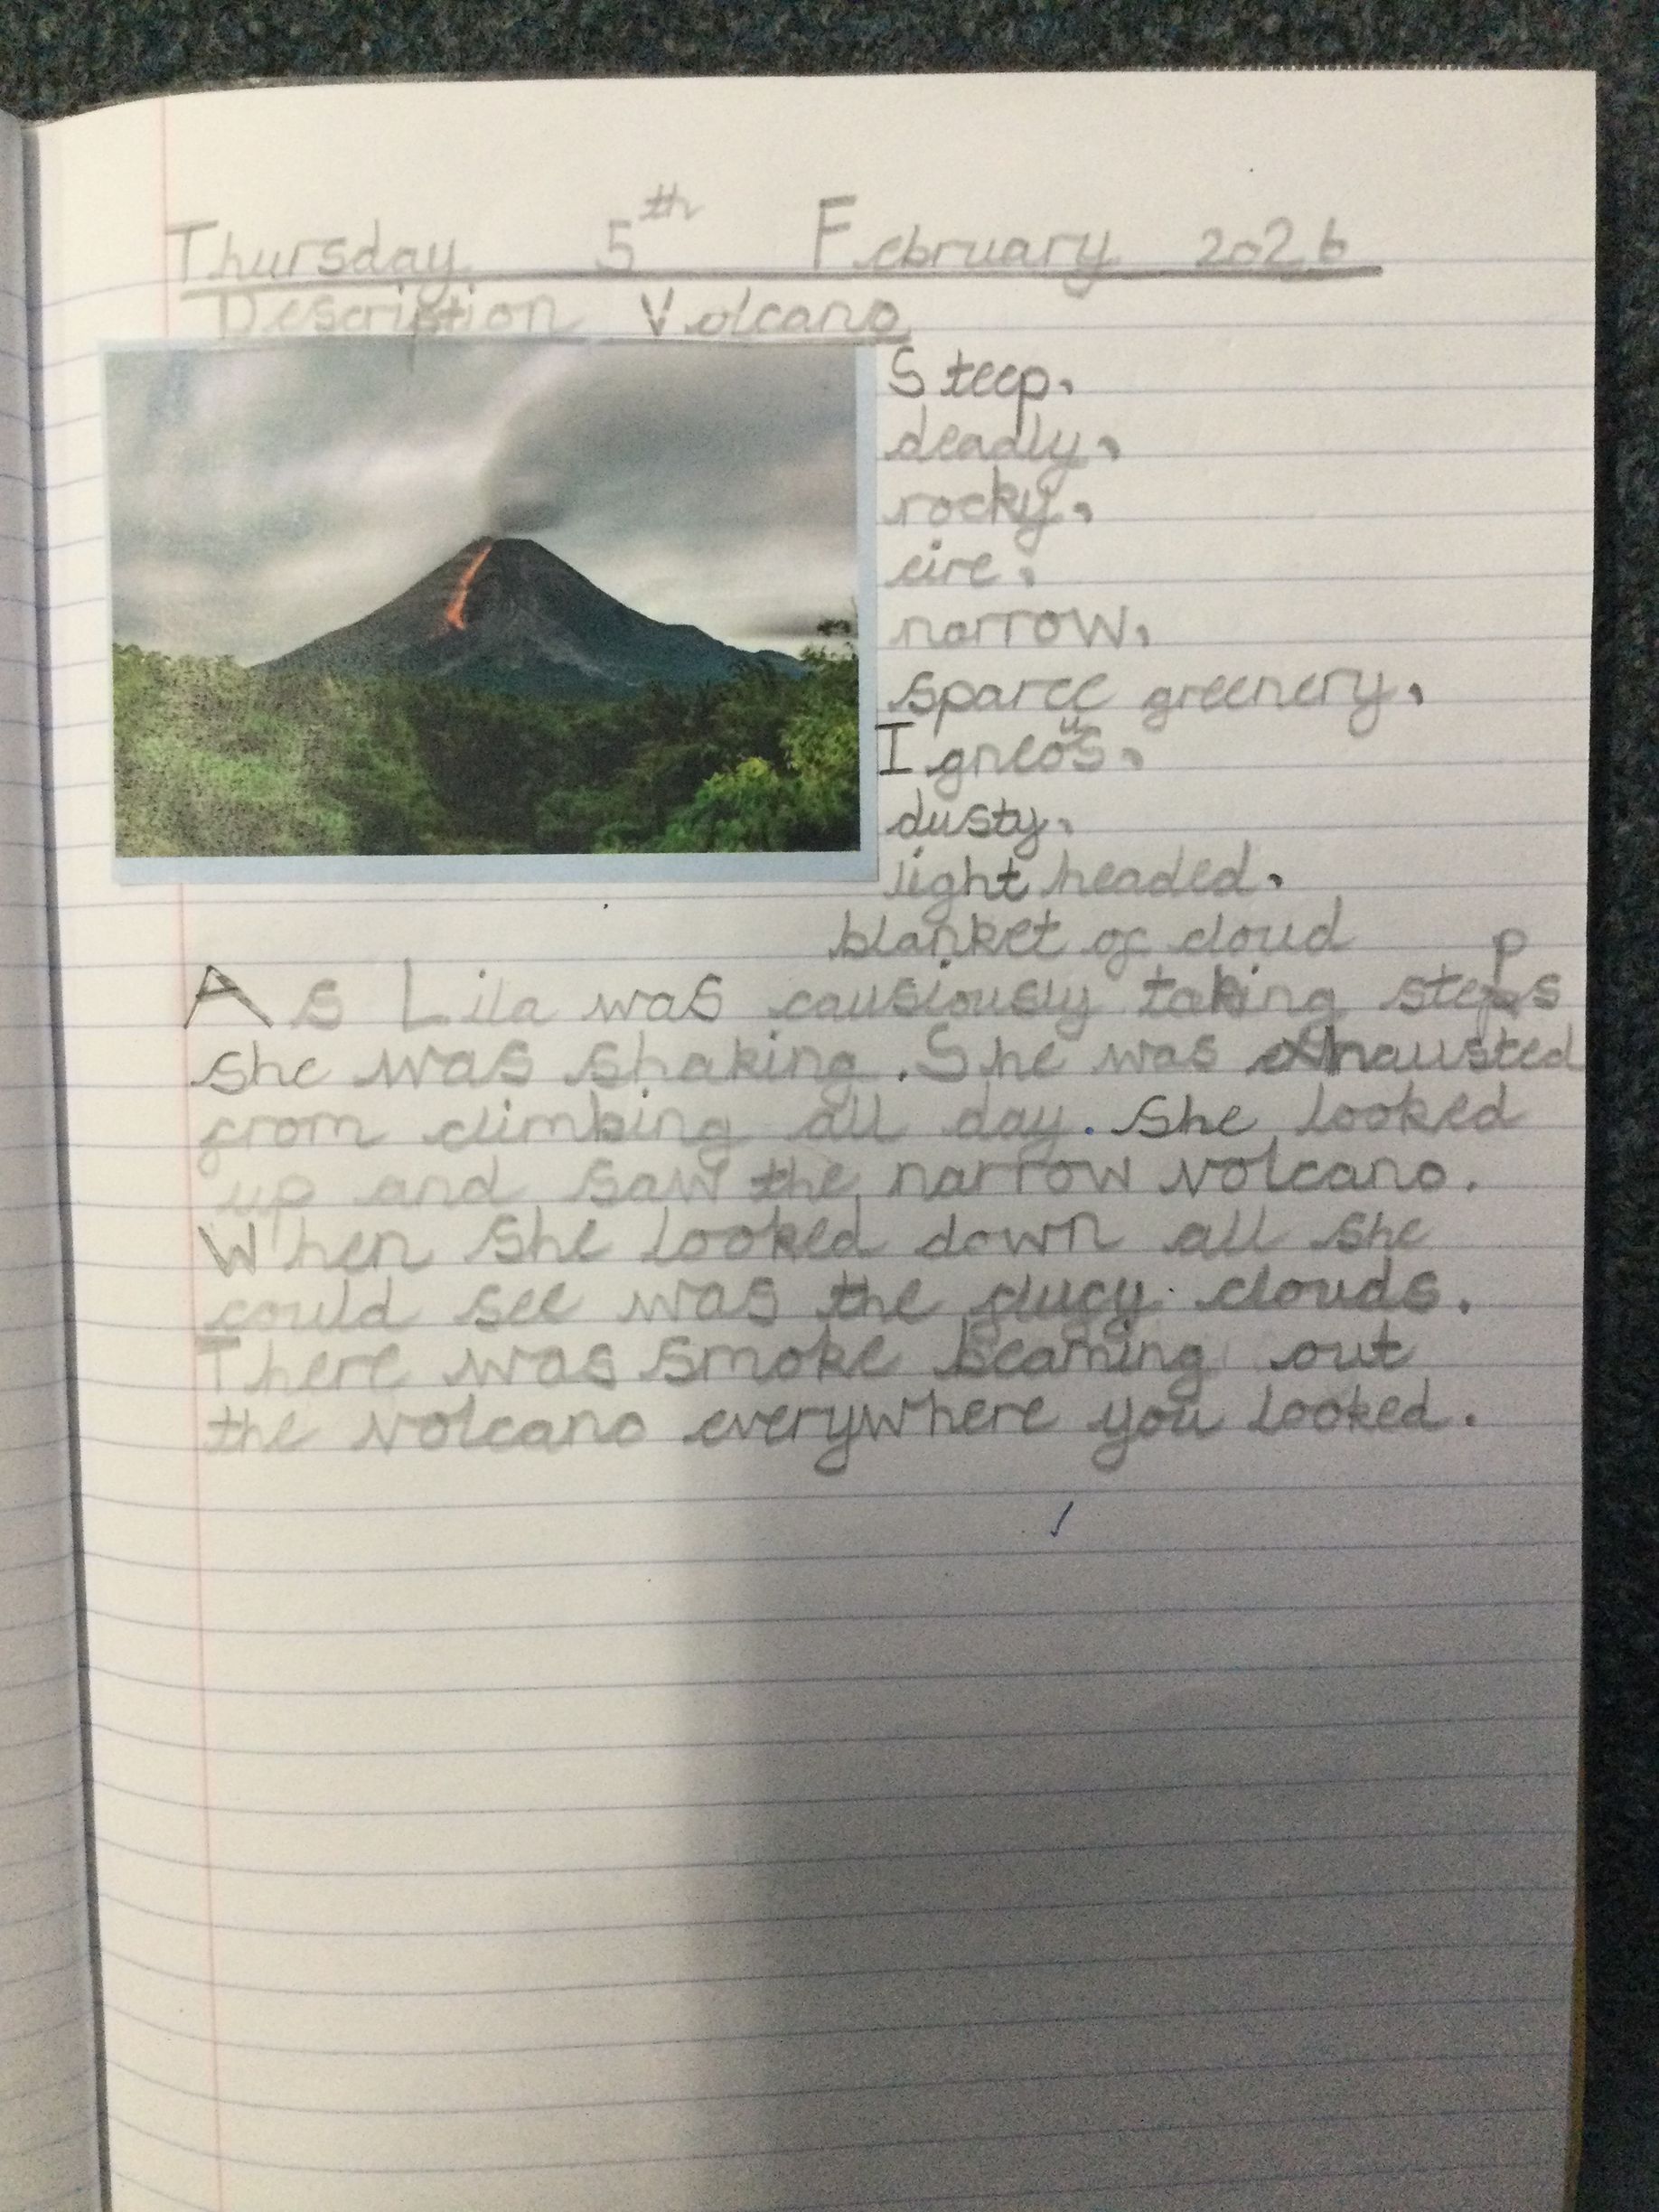 Thursday 5th February 2026
Description Volcano
Steep,
deadly,
rocky,
eire,
narrow,
sparce greenery,
Igneous,
dusty,
light headed,
blanket of cloud
As Lila was causiously taking steps
she was shaking. She was exhausted
from climbing all day. She looked
up and saw the narrow volcano.
When she looked down all she
could see was the flufy clouds.
There was smoke beaming out
the volcano everywhere you looked.